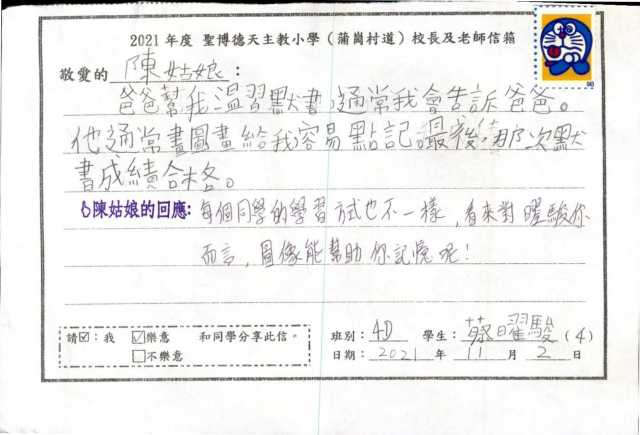 2021 年度 聖博德天主教小學（蒲崗村道）校長及老師信箱
敬愛的 陳姑娘：
爸爸幫我溫習默書，通常我會告訴爸爸。
他通常畫圖畫給我容易點記。最後，那次默
書成績合格。
陳姑娘的回應：每個同學的學習方式也不一樣，看來對曜駿你
而言，圖像能幫助你記憶呢！
請☑：我 ☑樂意 和同學分享此信。
□不樂意
班別：4D 學生：蔡曜駿（4）
日期：2021 年 11 月 2 日